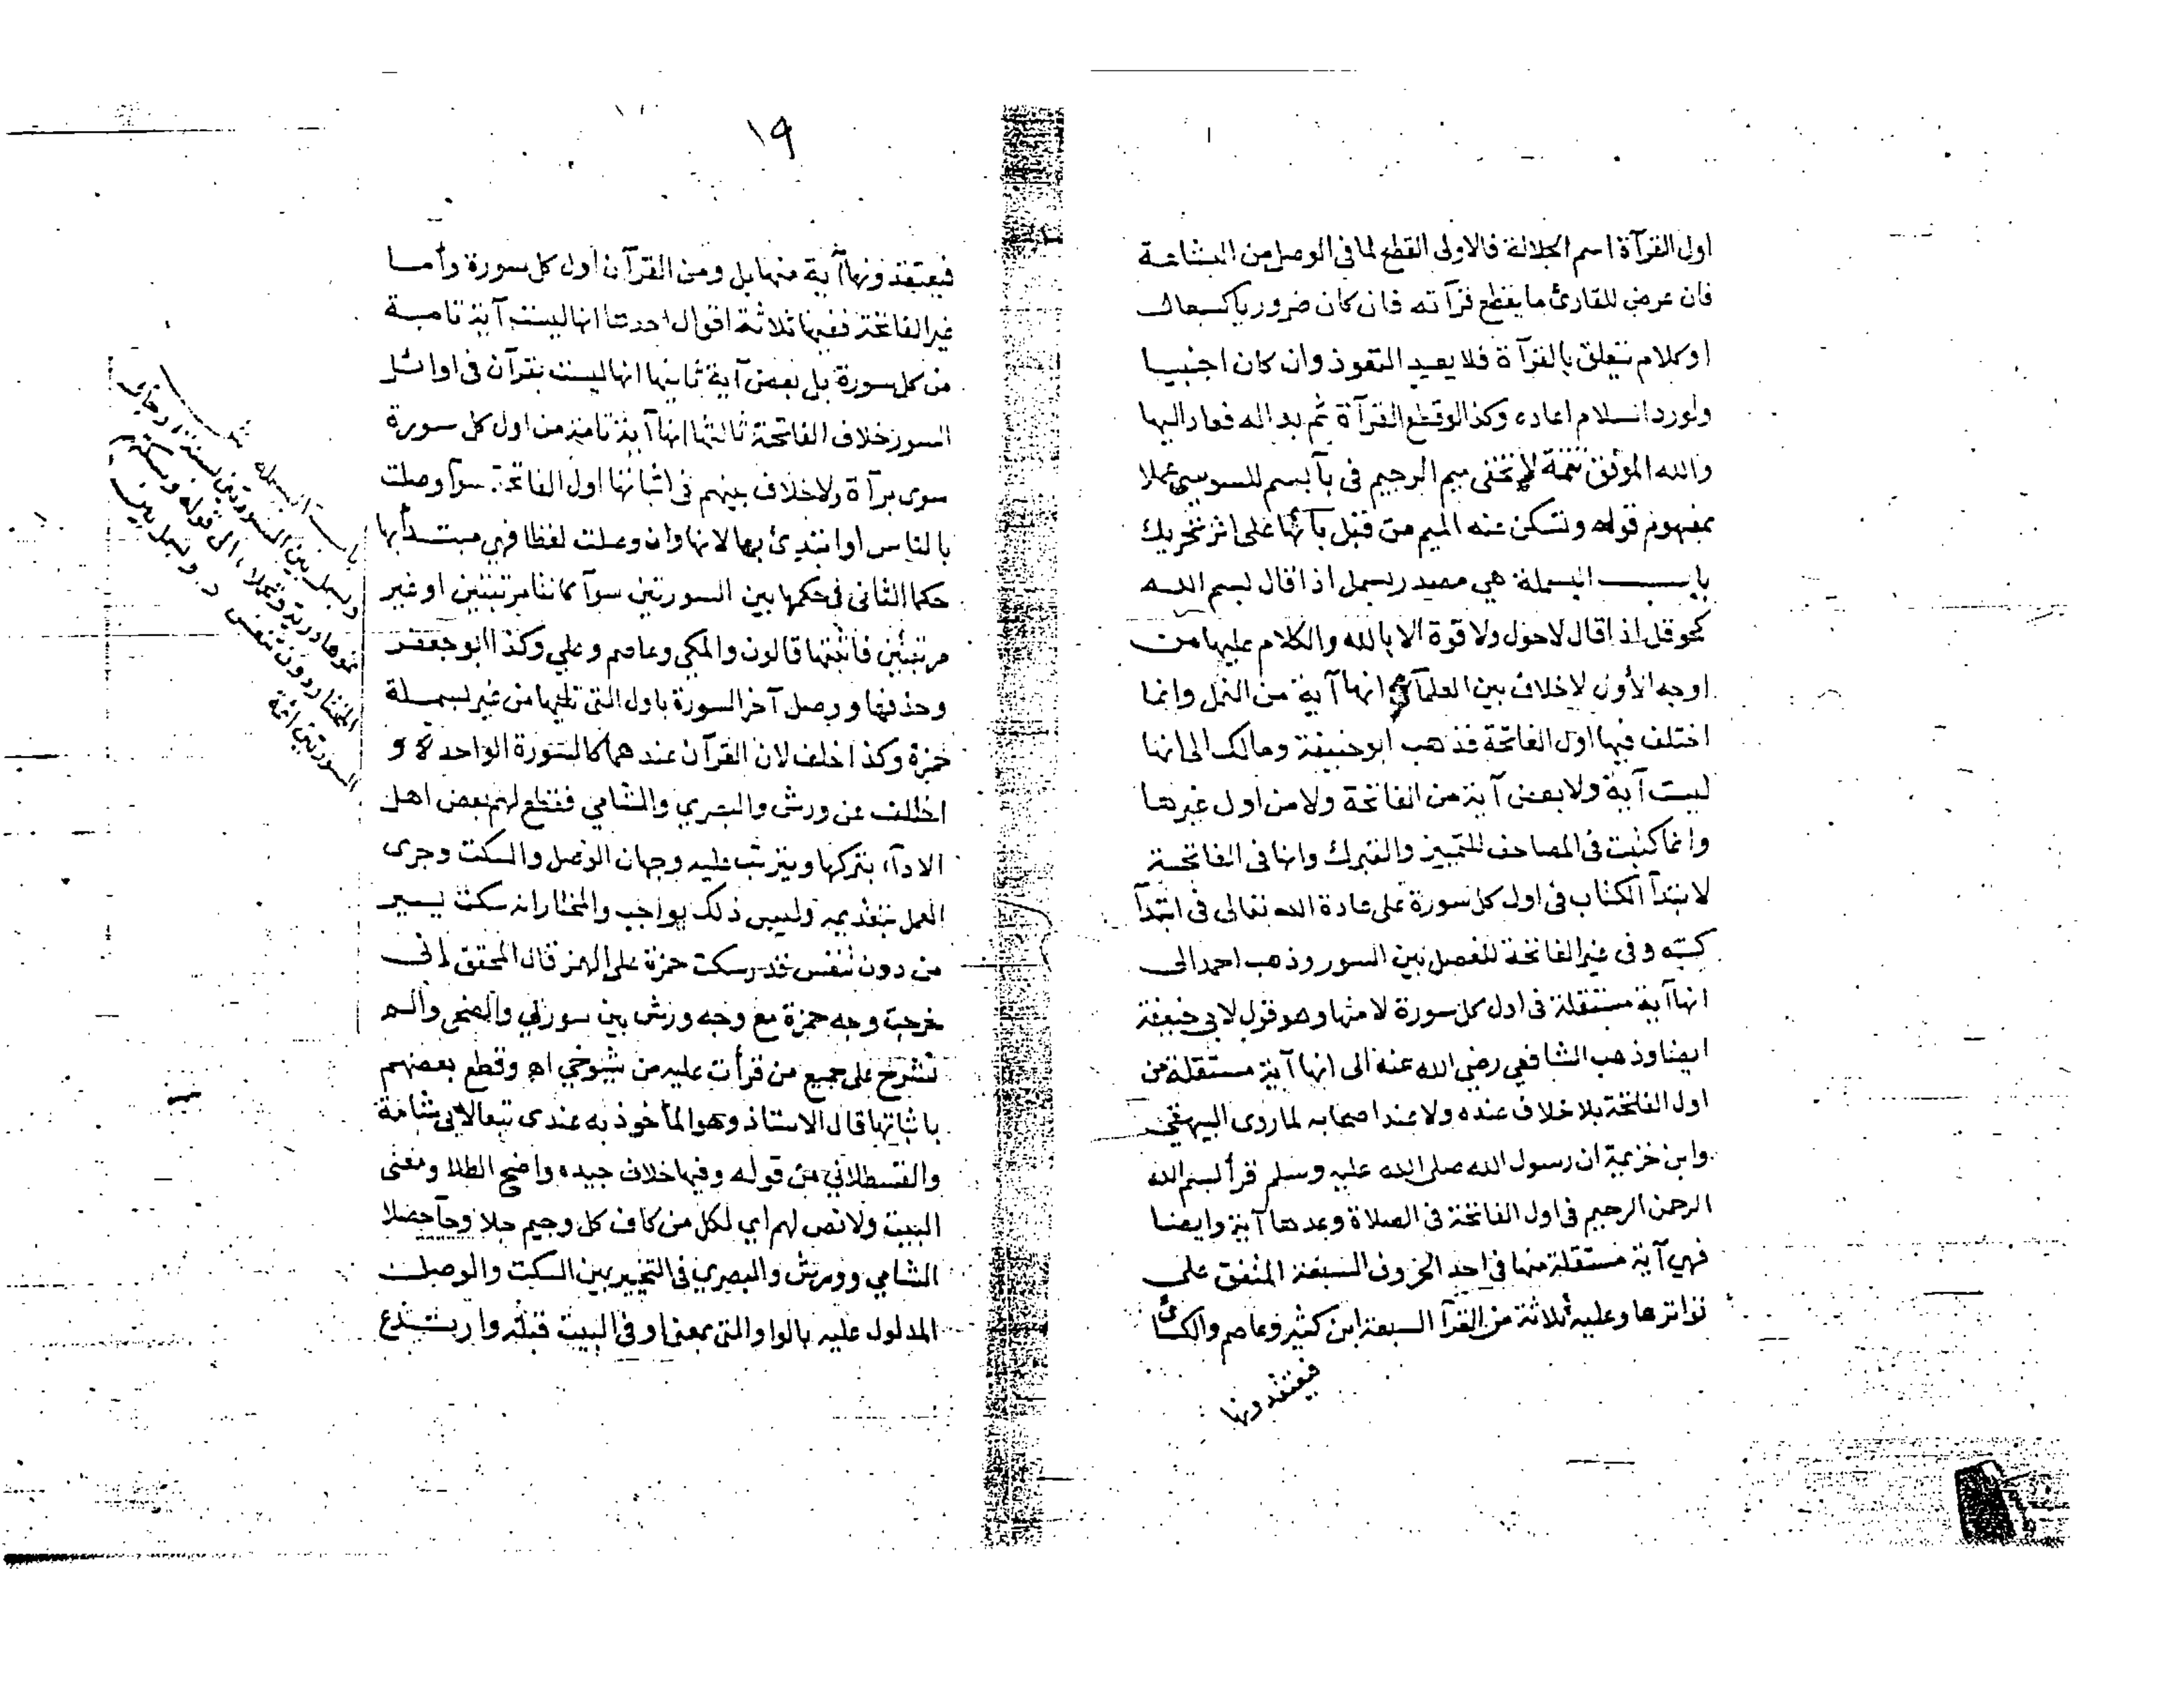 اول القرآة اسم الجلالة فالاولى القطع لما فى الوصل من البشاعة
فان عرض للقارئ ما يقطع قرآته فان كان ضروريا كسعال
او كلام يتعلق بالقرآة فلا يعيد التعوذ وان كان اجنبيا
ولو رد السلام اعاده وكذا لو قطع القرآة ثم بدا له فعاد اليها
والله الموفق تتمة لا تخفى ميم الرحيم فى بآ بسم للسوسي عملا
بمفهوم قوله وتسكن عنه الميم من قبل بآئها على اثر تحريك
باب البسملة هي مصدر بسمل اذا قال بسم الله
كحوقل اذا قال لا حول ولا قوة الا بالله والكلام عليها من
اوجه الأول لا خلاف بين العلمآ فى انها آية من النمل وانما
اختلف فيها اول الفاتحة فذهب ابو حنيفة ومالك الى انها
ليست آية ولا بعض آية من الفاتحة ولا من اول غيرها
وانما كتبت فى المصاحف للتمييز والتبرك وانها فى الفاتحة
لابتدآ الكتاب فى اول كل سورة على عادة الله تعالى فى ابتدآ
كتبه وفى غير الفاتحة للفصل بين السور وذهب احمد الى
انها آية مستقلة فى اول كل سورة لا منها وهو قول لابي حنيفة
ايضا وذهب الشافعي رضي الله عنه الى انها آية مستقلة من
اول الفاتحة بلا خلاف عنده ولا عند اصحابه لما روى البيهقي
وابن خزيمة ان رسول الله صلى الله عليه وسلم قرأ بسم الله
الرحمن الرحيم فى اول الفاتحة فى الصلاة وعدها آية وايضا
فهي آية مستقلة منها فى احد الحروف السبعة المتفق على
تواترها وعليه ثلاثة من القرآ السبعة ابن كثير وعاصم والكسائى
فيعتقدونها
١٩
فيعتقدونها آية منها بل ومن القرآن اول كل سورة وأما
غير الفاتحة ففيها ثلاثة اقوال احدها انها ليست آية تامة
من كل سورة بل بعض آية ثانيها انها ليست بقرآن فى اوائل
السور خلاف الفاتحة ثالثها انها آية تامة من اول كل سورة
سوى برآة ولا خلاف بينهم فى اثباتها اول الفاتحة سوآ وصلت
بالناس او ابتدئ بها لانها وان وصلت لفظا فهي مبتدأ بها
حكما الثانى فى حكمها بين السورتين سوآ كانتا مرتبتين او غير
مرتبتين فاثبتها قالون والمكي وعاصم وعلي وكذا ابو جعفر
وحذفها ووصل آخر السورة باول التى تليها من غير بسملة
حمزة وكذا خلف لان القرآن عندهما كالسورة الواحدة و
اختلف عن ورش والبصري والشامي فقطع لهم بعض اهل
الادآء بتركها ويترتب عليه وجهان الوصل والسكت وجرى
العمل بتقديمه وليس ذلك بواجب والمختار انه سكت يسير
من دون تنفس قدر سكت حمزة على الهمز قال المحقق لانى
خرجت وجه حمزة مع وجه ورش بين سورتي والضحى والم
نشرح على جميع من قرأت عليه من شيوخي اه وقطع بعضهم
باثباتها قال الاستاذ وهو المأخوذ به عندى تبعا لابي شامة
والقسطلاني من قوله وفيها خلاف جيده واضح الطلا ومعنى
البيت ولا نص لهم اي لكل من كاف كل وجيم جلا وحآ حصلا
الشامي وورش والبصري فى التخيير بين السكت والوصل
المدلول عليه بالواو التى بمعنى او فى البيت قبله واربتدع
باب البسملة
وبسمل بين السورتين بسنة رجال
نموها درية وتحملا الى قوله وسكتهم
المختار دون تنفس وبسمل بين
السورتين ائمة